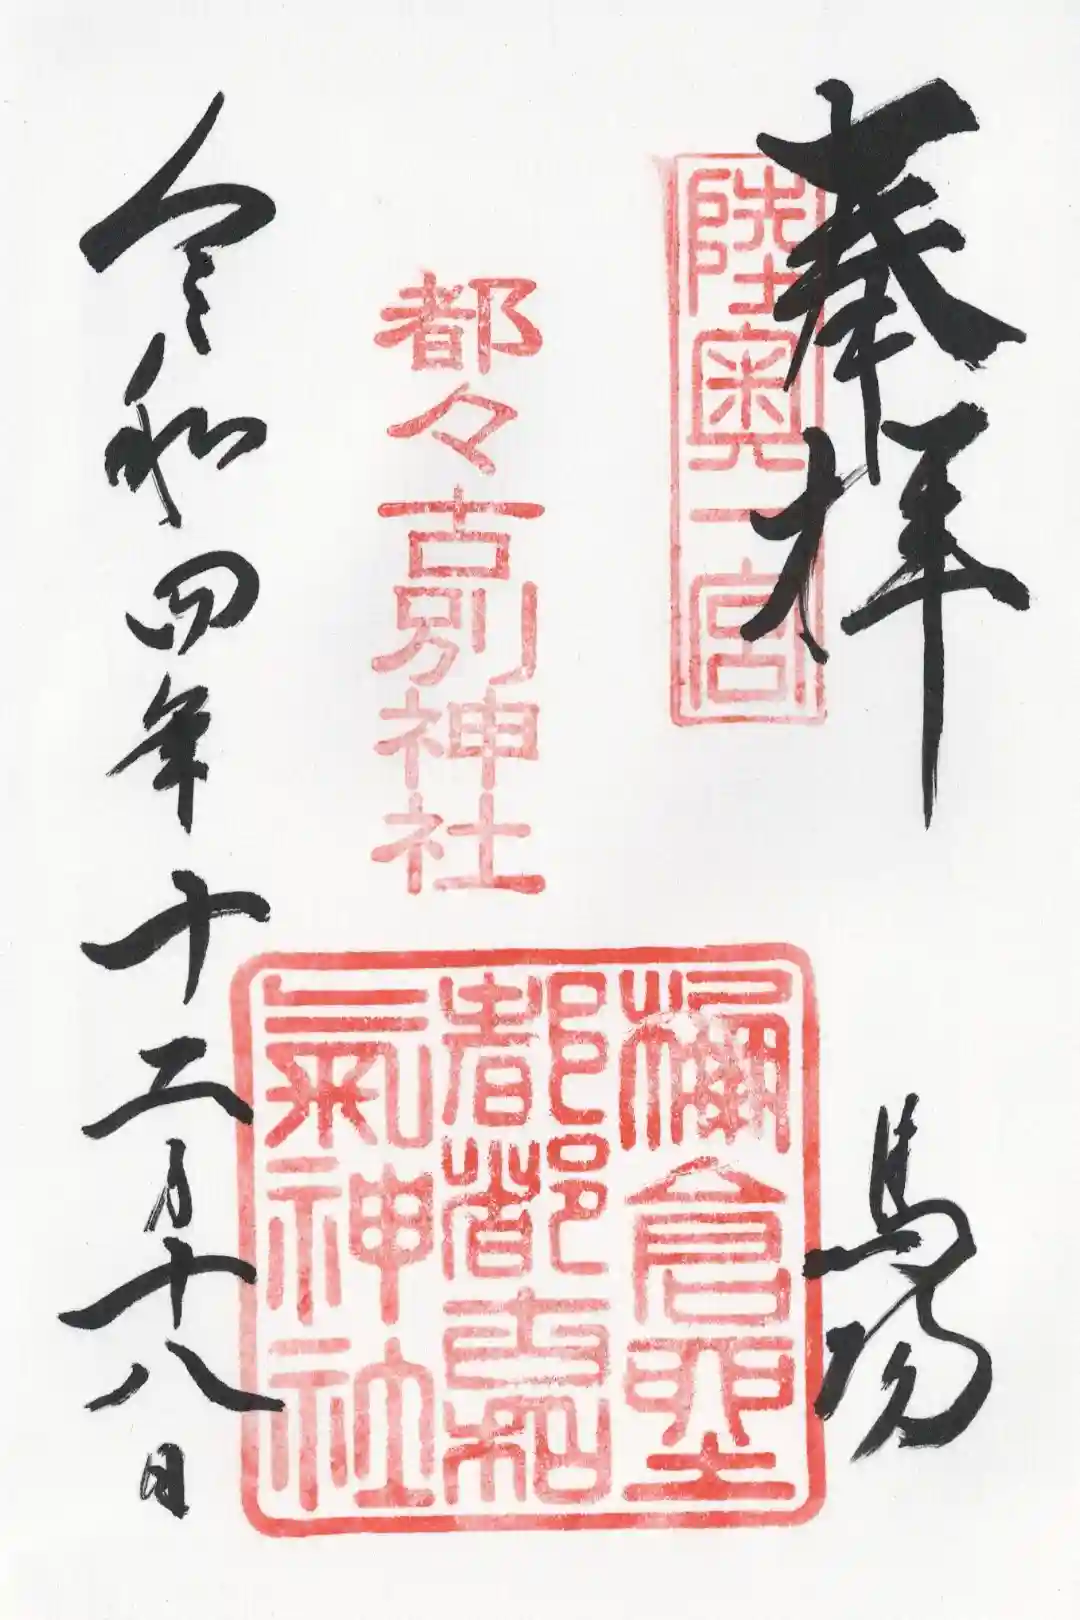 奉拝
陸奥一宮
馬場
都々古別神社
倉坐
都都古和
氣神社
令和四年十二月十八日